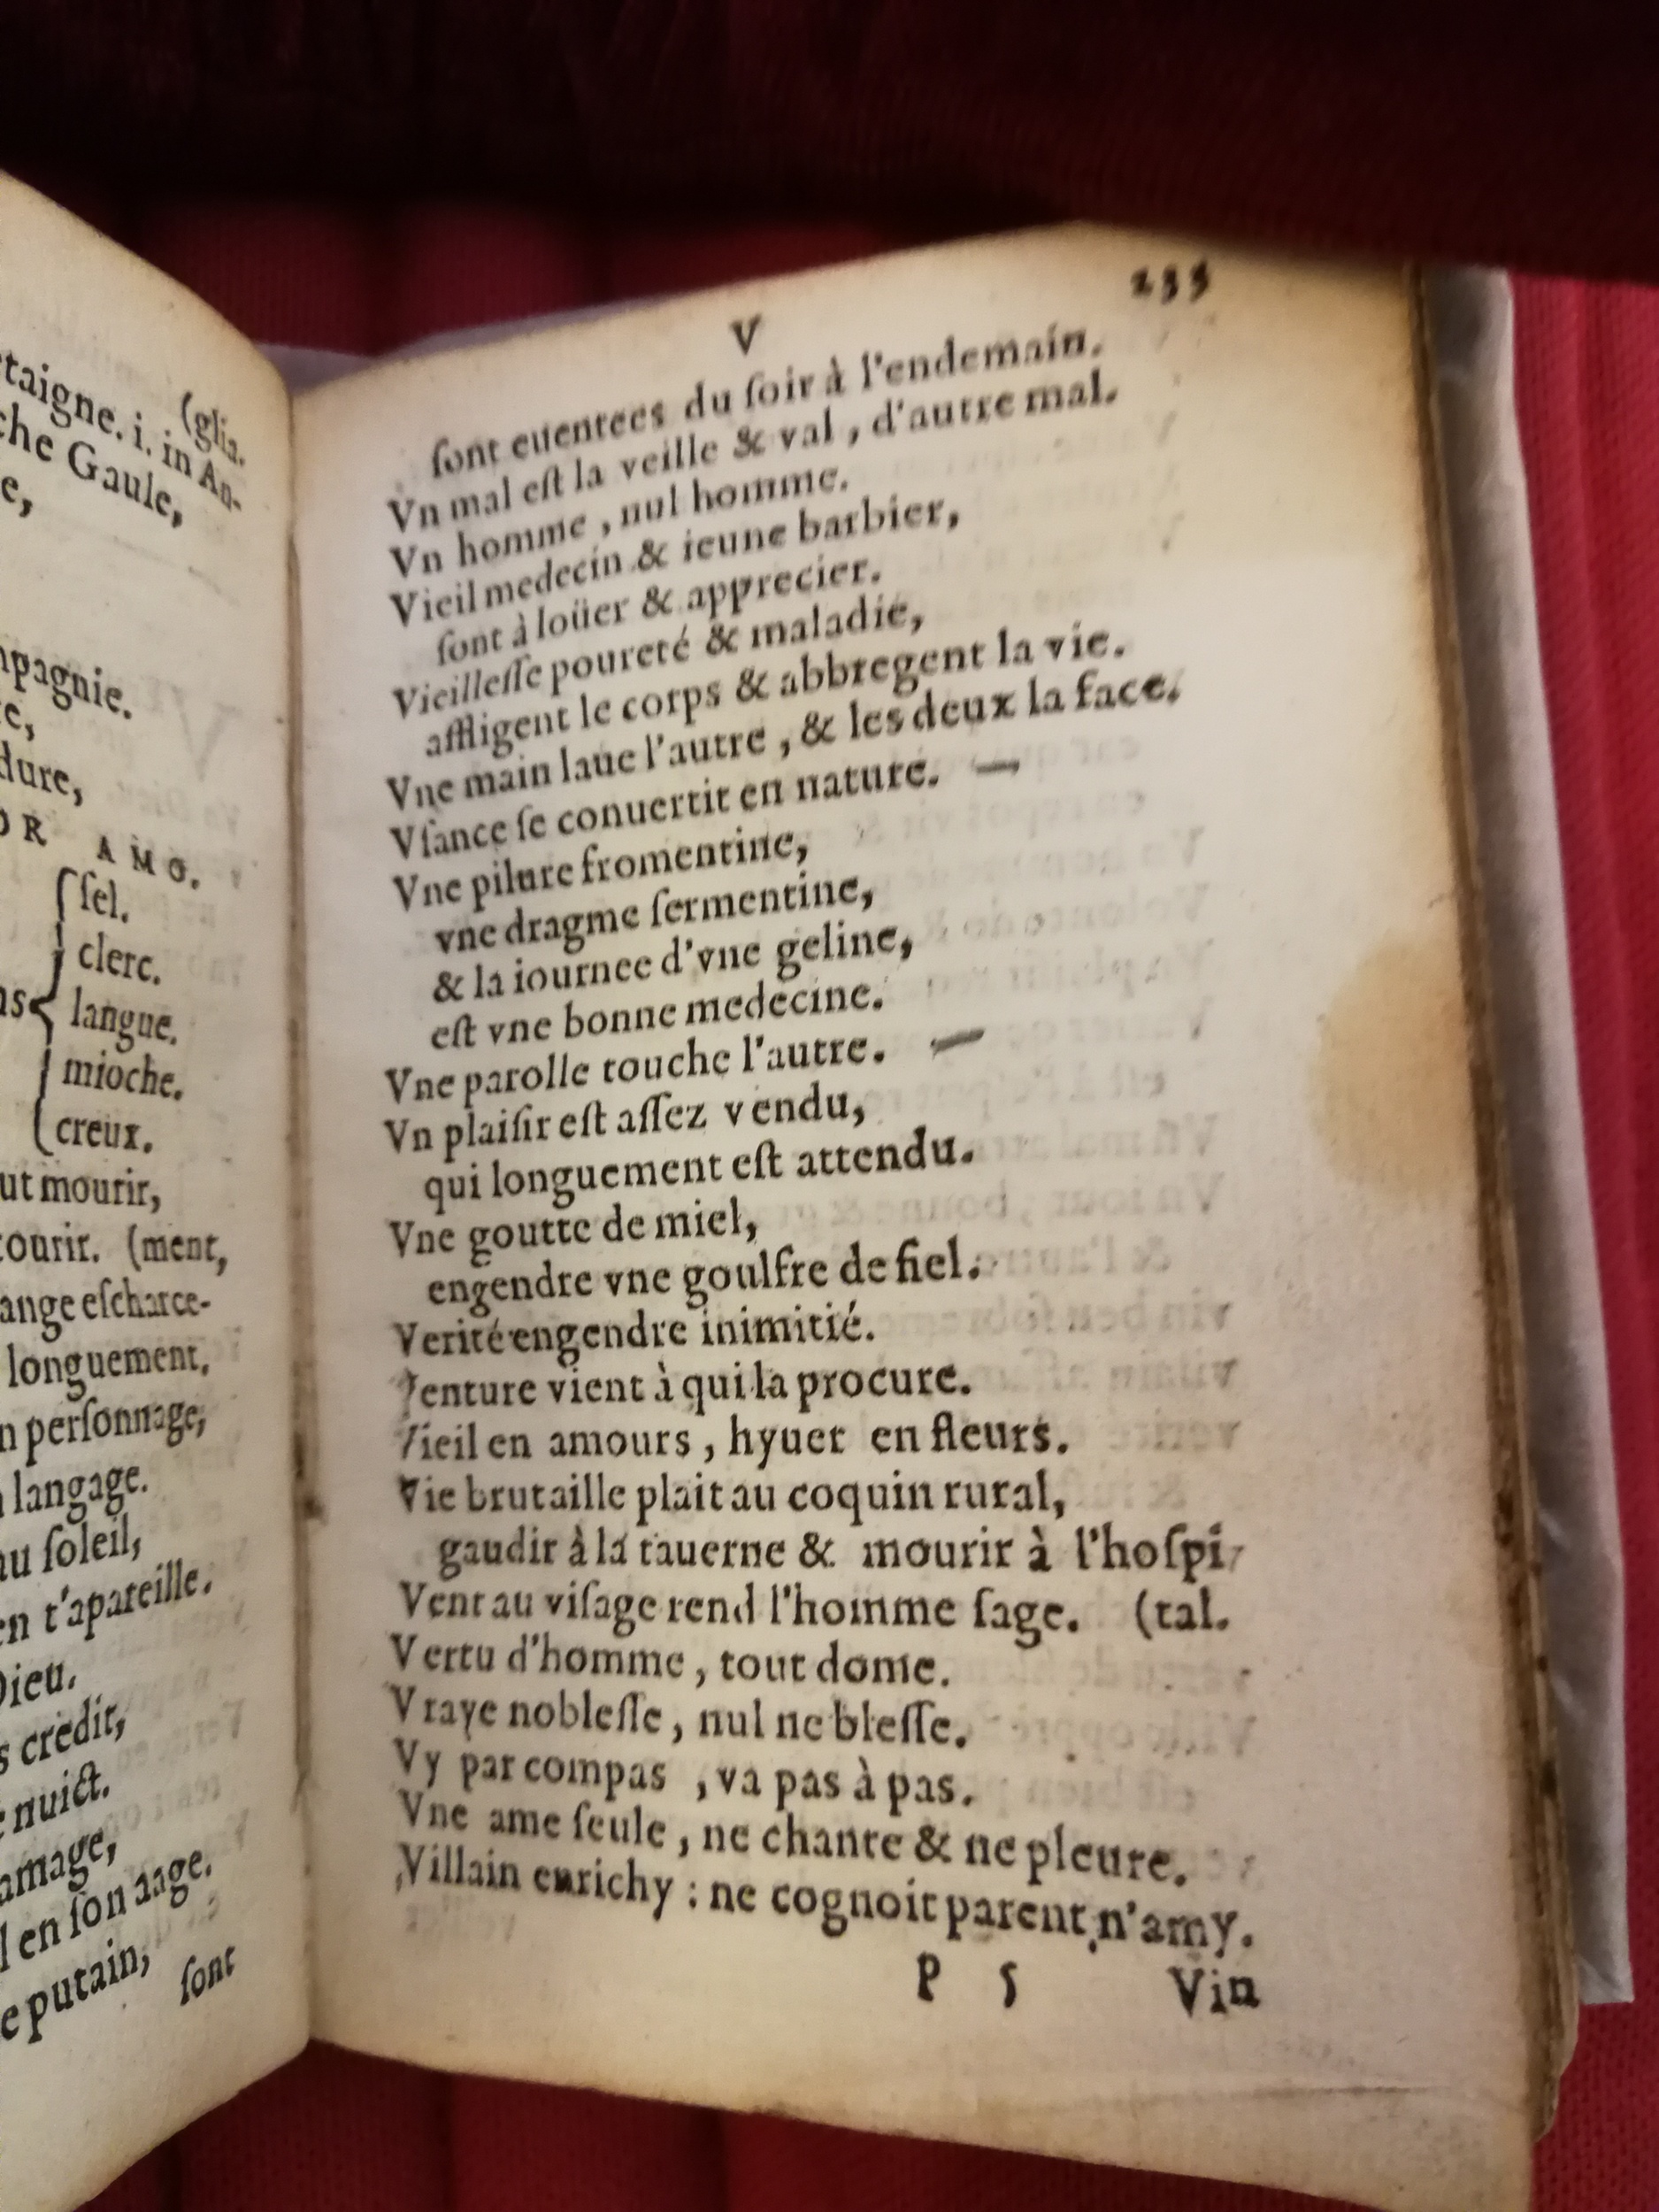 taigne. i. in An-
(glia.
che Gaule,
e,
mpagnie.
dure,
OR AMO.
ſel.
clerc.
langue.
mioche.
creux.
ut mourir,
courir. (ment,
ange eſcharce-
longuement,
n perſonnage,
langage.
au ſoleil,
en t'apareille.
Dieu.
s credit,
nuict.
amage,
l en ſon aage.
e putain,
ſont
V
ſont euentees du ſoir à l'endemain.
Vn mal eſt la veille & val, d'autre mal.
Vn homme, nul homme.
Vieil medecin & ieune barbier,
ſont à loüer & apprecier.
Vieilleſſe poureté & maladie,
affligent le corps & abbregent la vie.
Vne main laue l'autre, & les deux la face.
Vſance ſe conuertit en nature.
Vne pilure fromentine,
vne dragme ſermentine,
& la iournee d'vne geline,
eſt vne bonne medecine.
Vne parolle touche l'autre.
Vn plaiſir eſt aſſez vendu,
qui longuement eſt attendu.
Vne goutte de miel,
engendre vne goulfre de fiel.
Verité engendre inimitié.
Venture vient à qui la procure.
Vieil en amours, hyuer en fleurs.
Vie brutaille plait au coquin rural,
gaudir à la tauerne & mourir à l'hoſpi-
Vent au viſage rend l'homme ſage. (tal.
Vertu d'homme, tout dome.
Vraye nobleſſe, nul ne bleſſe.
Vy par compas, va pas à pas.
Vne ame ſeule, ne chante & ne pleure.
Villain enrichy : ne cognoit parent n'amy.
P 5 Vin